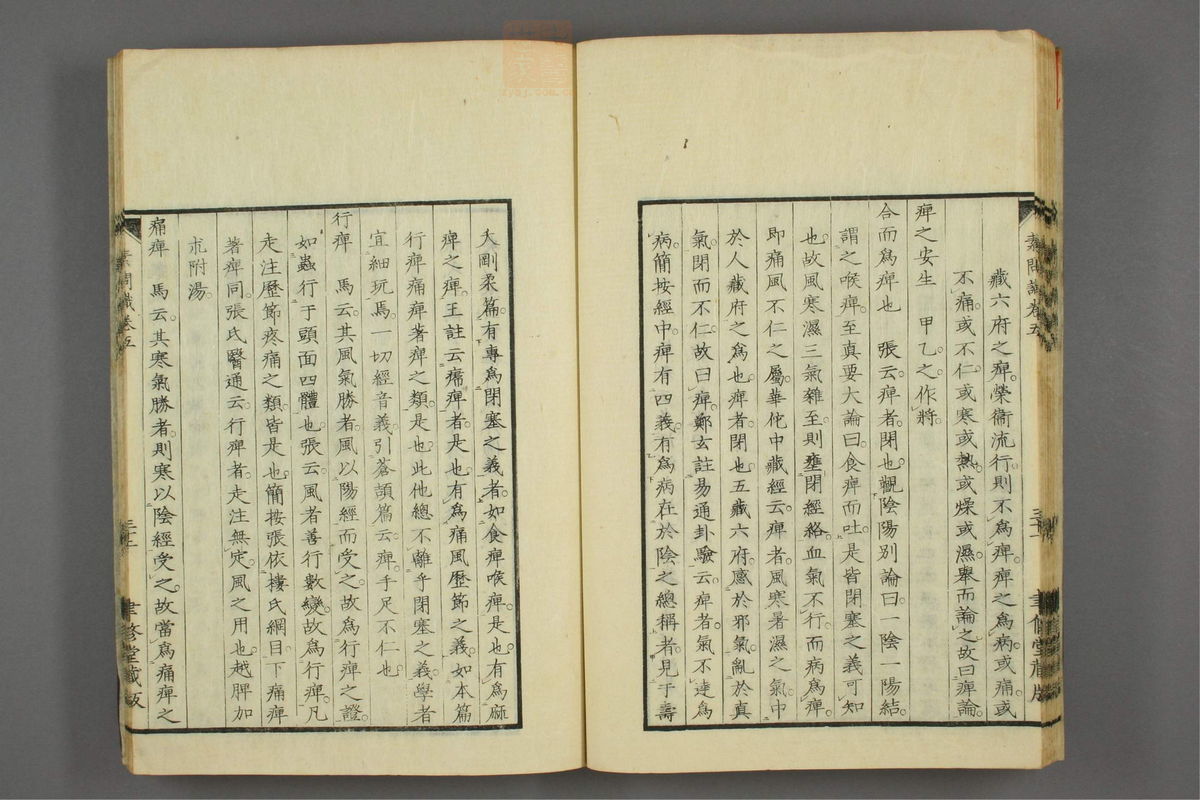 藏六府之痺。榮衞流行。則不爲痺。痺之爲病。或痛。或
不痛。或不仁。或寒。或熱。或燥。或濕。擧而論之。故曰痺論。
痺之安生　甲乙之作將。
合而爲痺也　張云。痺者。閉也。觀陰陽別論曰。一陰一陽結。
謂之喉痺。至真要大論曰。食痺而吐。是皆閉塞之義可知
也。故風寒濕三氣雜至。則壅閉經絡。血氣不行。而病爲痺。
即痛風不仁之屬。華佗中藏經云。痺者。風寒暑濕之氣。中
於人藏府之爲也。痺者。閉也。五藏六府。感於邪氣。亂於真
氣。閉而不仁。故曰痺。鄭玄註易通卦驗云。痺者。氣不達爲
病。簡按經中。痺有四義。有爲病在於陰之總稱者。見于壽
夭剛柔篇。有專爲閉塞之義者。如食痺喉痺。是也。有爲麻
痺之痺。王註云。㾏痺者。是也。有爲痛風歷節之義。如本篇
行痺痛痺著痺之類。是也。此他總不離乎閉塞之義。學者
宜細玩焉。一切經音義。引蒼頡篇云。痺手足不仁也
行痺　馬云。其風氣勝者。風以陽經而受之。故爲行痺之證。
如蟲行于頭面四體也。張云。風者善行數變。故爲行痺。凡
走注歷節疼痛之類。皆是也。簡按張依樓氏綱目。下痛痺
著痺同。張氏醫通云。行痺者。走注無定。風之用也。越脾加
朮附湯。
痛痺　馬云。其寒氣勝者。則寒以陰經受之。故當爲痛痺之
素問識卷五
三十二
聿修堂藏版